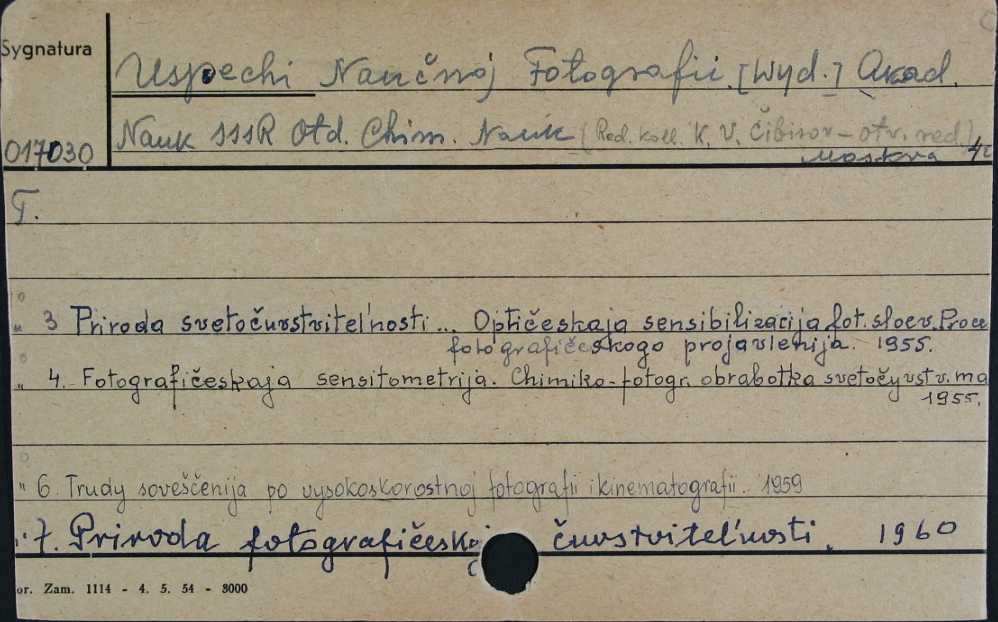 Sygnatura
Uspechi Naučnoj Fotografii. [Wyd.] Akad.
Nauk SSSR Otd. Chim. Nauk (Red. koll. K. V. Čibisov – otv. red.)
017030
Moskva 4°
T.
" 3 Priroda svetočuvstvitel'nosti... Optičeskaja sensibilizacija fot. sloev. Proce
fotografičeskogo projavlenija. 1955.
" 4. Fotografičeskaja sensitometrija. Chimiko-fotogr. obrabotka svetočuvstv. ma
1955.
" 6. Trudy soveščenija po vysokoskorostnoj fotografii i kinematografii.. 1959
" 7. Priroda fotografičeskoj čuvstvitel'nosti. 1960
or. Zam. 1114 - 4. 5. 54 - 8000